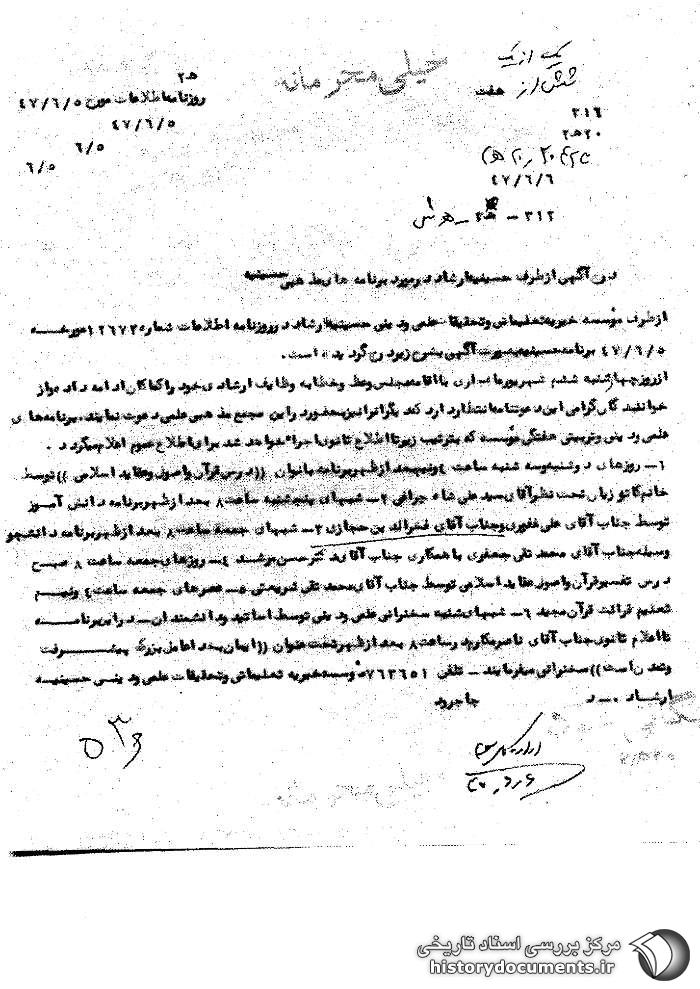 خیلی محرمانه
یک از یک
شش از هفت
ه‍ ۲
روزنامه اطلاعات مورخ ۴۷/۶/۵
۴۷/۶/۵
۶/۵
۶/۵
۳۱۶
۲۰ ه‍ ۲
۴۷/۶/۶
۳۱۲ –
درج آگهی از طرف حسینیه ارشاد در مورد برنامه های مذهبی حسینیه
از طرف مؤسسه خیریه تعلیماتی و تحقیقات علمی و دینی حسینیه ارشاد در روزنامه اطلاعات شماره ۱۲۶۷۳ مورخه
۴۷/۶/۵ برنامه حسینیه بصورت آگهی بشرح زیر درج گردیده است.
از روز چهارشنبه ششم شهریور ماه جاری با اقامه مجلس وعظ و خطابه وظایف ارشادی خود را کماکان ادامه داده و از
خوانندگان گرامی این دعوتنامه انتظار دارد که دیگران را نیز بحضور در این مجمع مذهبی علمی دعوت نمایند. برنامه های
علمی و دینی و تربیتی هفتگی مؤسسه که بترتیب زیر تا اطلاع ثانوی اجرا خواهد شد برای اطلاع عموم اعلام میگردد.
۱– روزهای دوشنبه و سه شنبه ساعت ۴ و نیم بعد از ظهر برنامه بانوان ((درس قرآن و اصول و عقاید اسلامی)) توسط
خانم کاتوزیان تحت نظر آقای سید علی شاه چراغی ۲– شبهای پنجشنبه ساعت ۸ بعد از ظهر برنامه دانش آموز
توسط جناب آقای علی غفوری و جناب آقای فخرالدین حجازی ۳– شبهای جمعه ساعت ۸ بعد از ظهر برنامه دانشجو
وسیله جناب آقای محمد تقی جعفری با همکاری جناب آقای دکتر حسن مرشد ۴– روزهای جمعه ساعت ۸ صبح
درس تفسیر قرآن و اصول عقاید اسلامی توسط جناب آقای محمد تقی شریعتی ۵– عصرهای جمعه ساعت ۴ و نیم
تعلیم قرائت قرآن مجید ۶– شبهای شنبه سخنرانی علمی و دینی توسط اساتید و دانشمندان – در این برنامه
تا اعلام ثانوی جناب آقای ناصر مکارم در ساعت ۸ بعد از ظهر تحت عنوان ((ایمان بخدا عامل بزرگ پیشرفت
و تمدن است)) سخنرانی میفرمایند – تلفن ۷۶۳۶۵۱ مؤسسه خیریه تعلیماتی و تحقیقات علمی و دینی حسینیه
ارشاد. – د جاجرود
مرکز بررسی اسناد تاریخی
historydocuments.ir